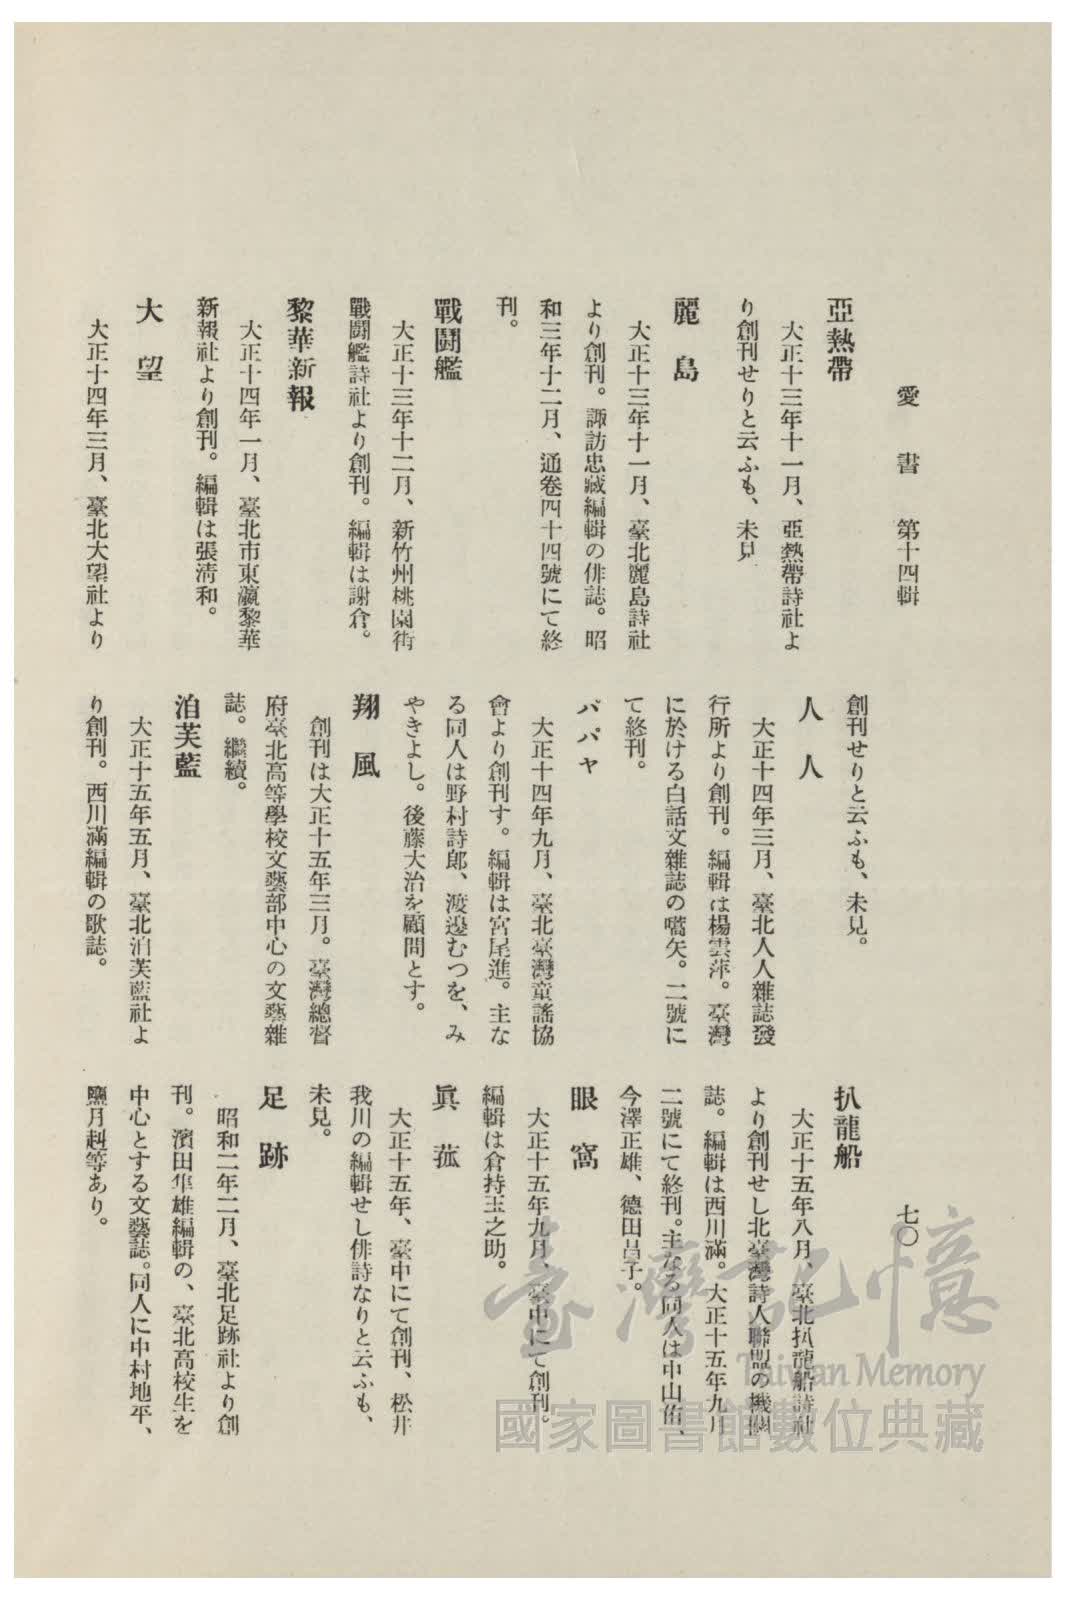 愛書 第十四輯
七〇
亞熱帶
大正十三年十一月、亞熱帶詩社よ
り創刊せりと云ふも、未見
麗島
大正十三年十一月、臺北麗島詩社
より創刊。諏訪忠藏編輯の俳誌。昭
和三年十二月、通卷四十四號にて終
刊。
戰鬪艦
大正十三年十二月、新竹州桃園街
戰鬪艦詩社より創刊。編輯は謝倉。
黎華新報
大正十四年一月、臺北市東瀛黎華
新報社より創刊。編輯は張淸和。
大望
大正十四年三月、臺北大望社より
創刊せりと云ふも、未見。
人人
大正十四年三月、臺北人人雜誌發
行所より創刊。編輯は楊雲萍。臺灣
に於ける白話文雜誌の嚆矢。二號に
て終刊。
パパヤ
大正十四年九月、臺北臺灣童謠協
會より創刊す。編輯は宮尾進。主な
る同人は野村詩郎、渡邊むつを、み
やきよし。後藤大治を顧問とす。
翔風
創刊は大正十五年三月。臺灣總督
府臺北高等學校文藝部中心の文藝雜
誌。繼續。
泊芙藍
大正十五年五月、臺北泊芙藍社よ
り創刊。西川滿編輯の歌誌。
扒龍船
大正十五年八月、臺北扒龍船詩社
より創刊せし北臺灣詩人聯盟の機關
誌。編輯は西川滿。大正十五年九月
二號にて終刊。主なる同人は中山侑、
今澤正雄、德田昌子。
眼窩
大正十五年九月、臺中にて創刊。
編輯は倉持玉之助。
眞菰
大正十五年、臺中にて創刊、松井
我川の編輯せし俳詩なりと云ふも、
未見。
足跡
昭和二年二月、臺北足跡社より創
刊。濱田隼雄編輯の、臺北高校生を
中心とする文藝誌。同人に中村地平、
鹽月赳等あり。
臺灣記憶
Taiwan Memory
國家圖書館數位典藏